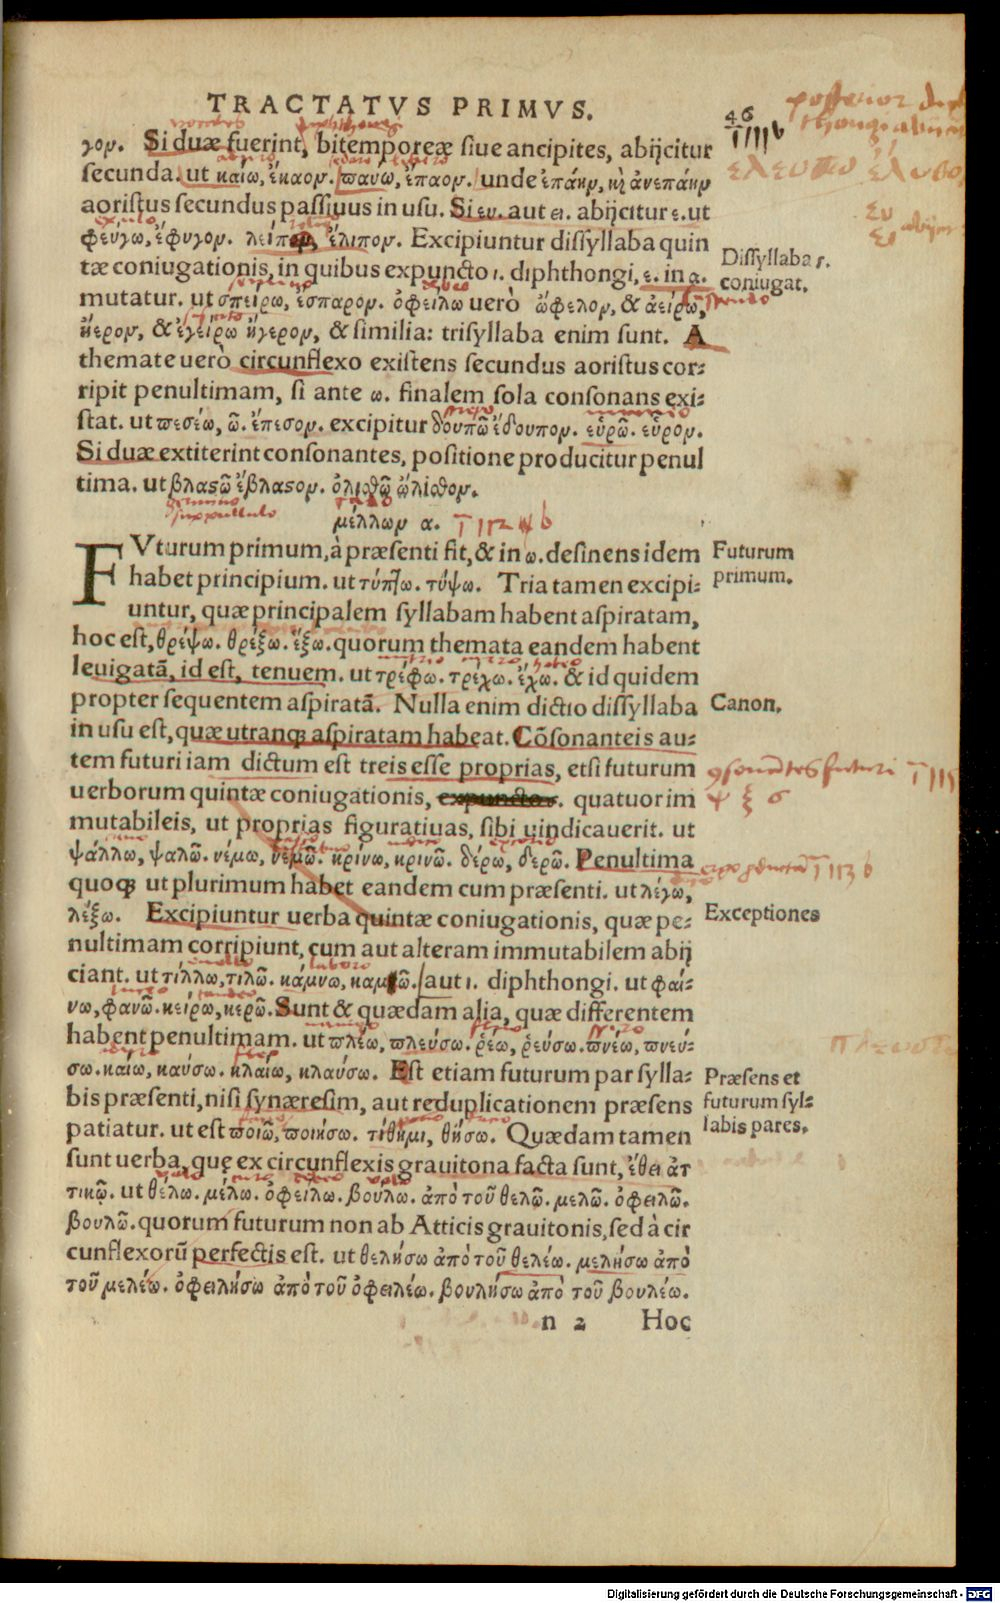 TRACTATVS PRIMVS.
46
γον. Si duæ fuerint, bitemporeæ siue ancipites, abijcitur
secunda. ut καίω, ἔκαον. παύω, ἔπαον. unde ἐπάην, κὴ ἀνεπάην
aoristus secundus passiuus in usu. Si ευ. aut ει. abijcitur ε. ut
φεύγω, ἔφυγον. λείπω, ἔλιπον. Excipiuntur dissyllaba quin
tæ coniugationis, in quibus expuncto ι. diphthongi, ε. in α.
mutatur. ut σπείρω, ἔσπαρον. ὀφείλω uerò ὤφελον, & ἀείρω,
ἤερον, & ἐγείρω ἤγερον, & similia: trisyllaba enim sunt. A
themate uerò circunflexo existens secundus aoristus cor-
ripit penultimam, si ante ω. finalem sola consonans exi-
stat. ut πεσέω, ῶ. ἔπεσον. excipitur δουπῶ ἔδουπον. εὑρῶ. εὗρον.
Si duæ extiterint consonantes, positione producitur penul
tima. ut βλαςῶ ἔβλαςον. ὀλισθῶ ὤλισθον.
μέλλων α.
FVturum primum, à præsenti fit, & in ω. desinens idem
habet principium. ut τύπτω. τύψω. Tria tamen excipi-
untur, quæ principalem syllabam habent aspiratam,
hoc est, θρέψω. θρέξω. ἕξω. quorum themata eandem habent
leuigatã, id est, tenuem. ut τρέφω. τρέχω. ἔχω. & id quidem
propter sequentem aspiratã. Nulla enim dictio dissyllaba
in usu est, quæ utranq; aspiratam habeat. Cõsonanteis au-
tem futuri iam dictum est treis esse proprias, etsi futurum
uerborum quintæ coniugationis, quatuor im
mutabileis, ut proprias figuratiuas, sibi uindicauerit. ut
ψάλλω, ψαλῶ. νέμω, νεμῶ. κρίνω, κρινῶ. δέρω, δερῶ. Penultima
quoq; ut plurimum habet eandem cum præsenti. ut λέγω,
λέξω. Excipiuntur uerba quintæ coniugationis, quæ pe-
nultimam corripiunt, cum aut alteram immutabilem abij
ciant. ut τίλλω, τιλῶ. κάμνω, καμῶ. aut ι. diphthongi. ut φαί-
νω, φανῶ. κείρω, κερῶ. Sunt & quædam alia, quæ differentem
habent penultimam. ut πλέω, πλεύσω. ῥέω, ῥεύσω. πνέω, πνεύ-
σω. καίω, καύσω. κλαίω, κλαύσω. Est etiam futurum par sylla-
bis præsenti, nisi synæresim, aut reduplicationem præsens
patiatur. ut est ποιῶ, ποιήσω. τίθημι, θήσω. Quædam tamen
sunt uerba, quę ex circunflexis grauitona facta sunt, ἔθει ἀτ
τικῷ. ut θέλω. μέλω. ὀφείλω. βούλω. ἀπὸ τοῦ θελῶ. μελῶ. ὀφειλῶ.
βουλῶ. quorum futurum non ab Atticis grauitonis, sed à cir
cunflexorũ perfectis est. ut θελήσω ἀπὸ τοῦ θελέω. μελήσω ἀπὸ
τοῦ μελέω. ὀφειλήσω ἀπὸ τοῦ ὀφειλέω. βουλήσω ἀπὸ τοῦ βουλέω.
n 2 Hoc
Dissyllaba 5.
coniugat.
Futurum
primum.
Canon.
Exceptiones
Præsens et
futurum syl-
labis pares.
Digitalisierung gefördert durch die Deutsche Forschungsgemeinschaft - DFG